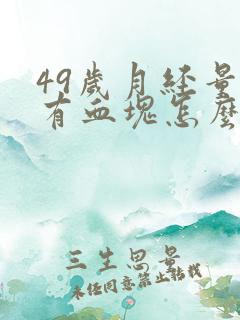 49歲月经量
有血塊怎麼
三生思景
未经同意禁止转载